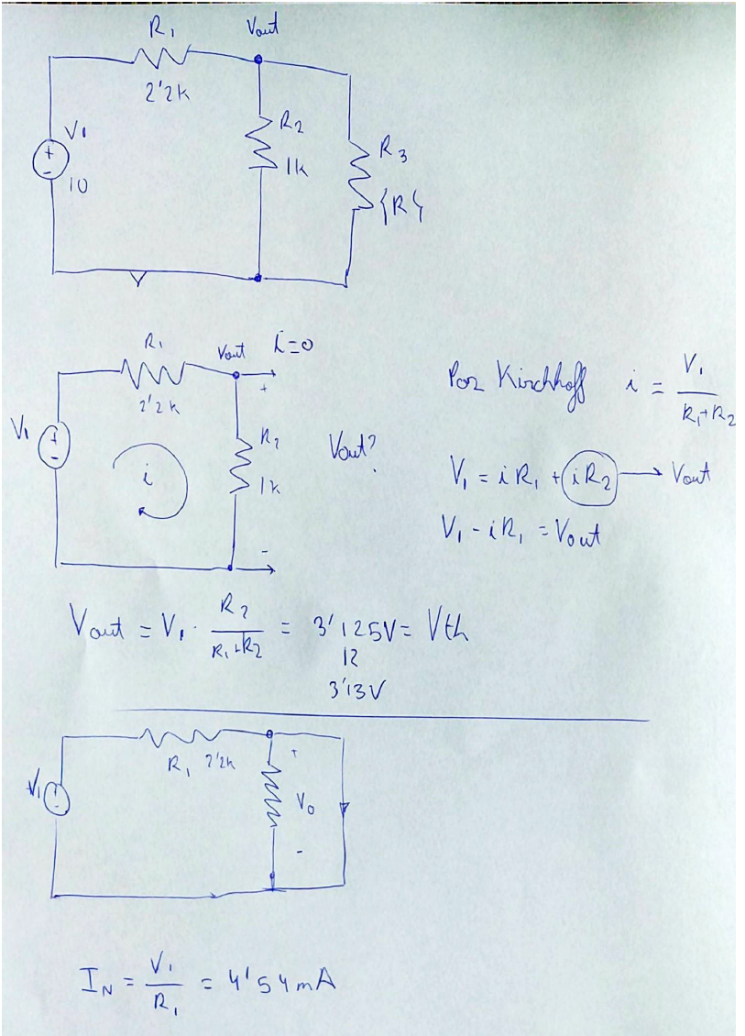 R₁ Vout
2'2k
V₁
+
-
10
R₂
1k
R₃
{R}
R₁ Vout i=0
2'2k
+
V₁
+
-
i
R₂
1k
-
Vout?
Por Kirchhoff i = V₁ / R₁+R₂
V₁ = iR₁ + iR₂ → Vout
V₁ - iR₁ = Vout
Vout = V₁ · R₂ / R₁+R₂ = 3'125V = Vth
12
3'13V
R₁ 2'2k
V₁
+
-
+
V₀
-
I_N = V₁ / R₁ = 4'54mA